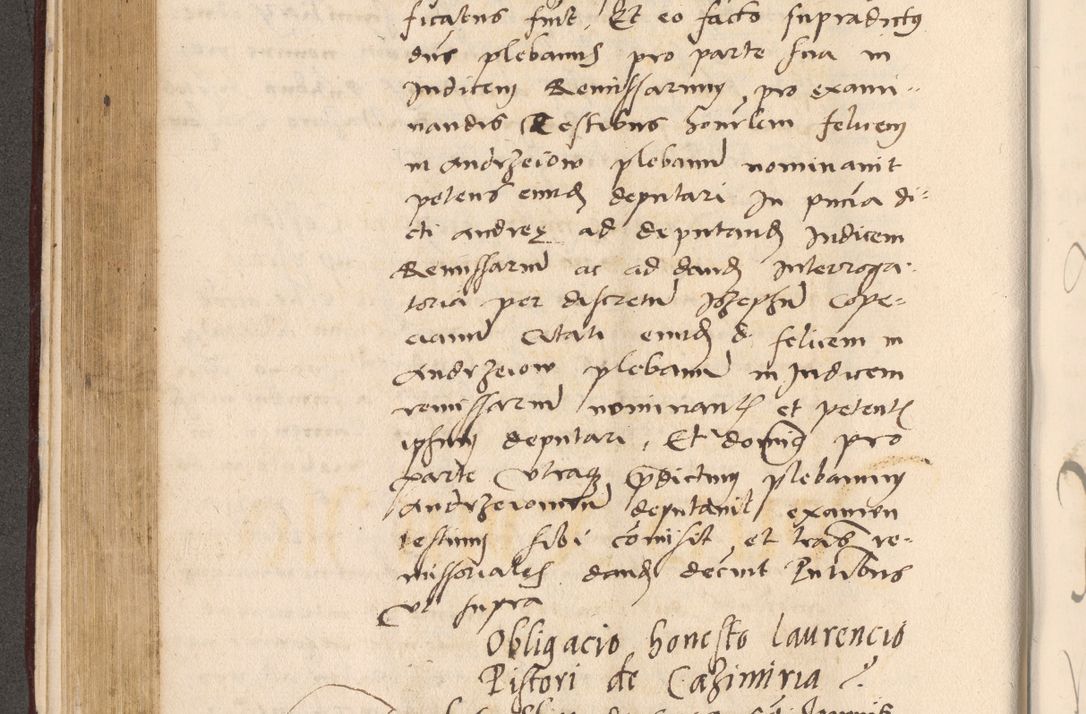 ficatus fuit Et eo facto supradictus
dns plebanus pro parte sua in
Iudicem Remissarium pro exami-
nandis Testibus honorlem felicem
in Andrzeiow plebanu nominauit
petens eund deputari In pncia di-
cti Andreę ad deputand Iudicem
Remissariu ac ad dand Interroga-
toria per discretu Iozephu Cope-
cianu Citati eund d felicem in
Andrzeiow plebanu in Iudicem
remissariu nominant et petent
ipsum deputari, Et domins pro
parte Vtraq pdictum plebanum
Andrzeiouien deputauit examen
testium sibi comisit et lras re-
missoriales dand decreuit Pntibus
Vt supra
Obligacio honesto Laurencio
Pistori de Cazimiria